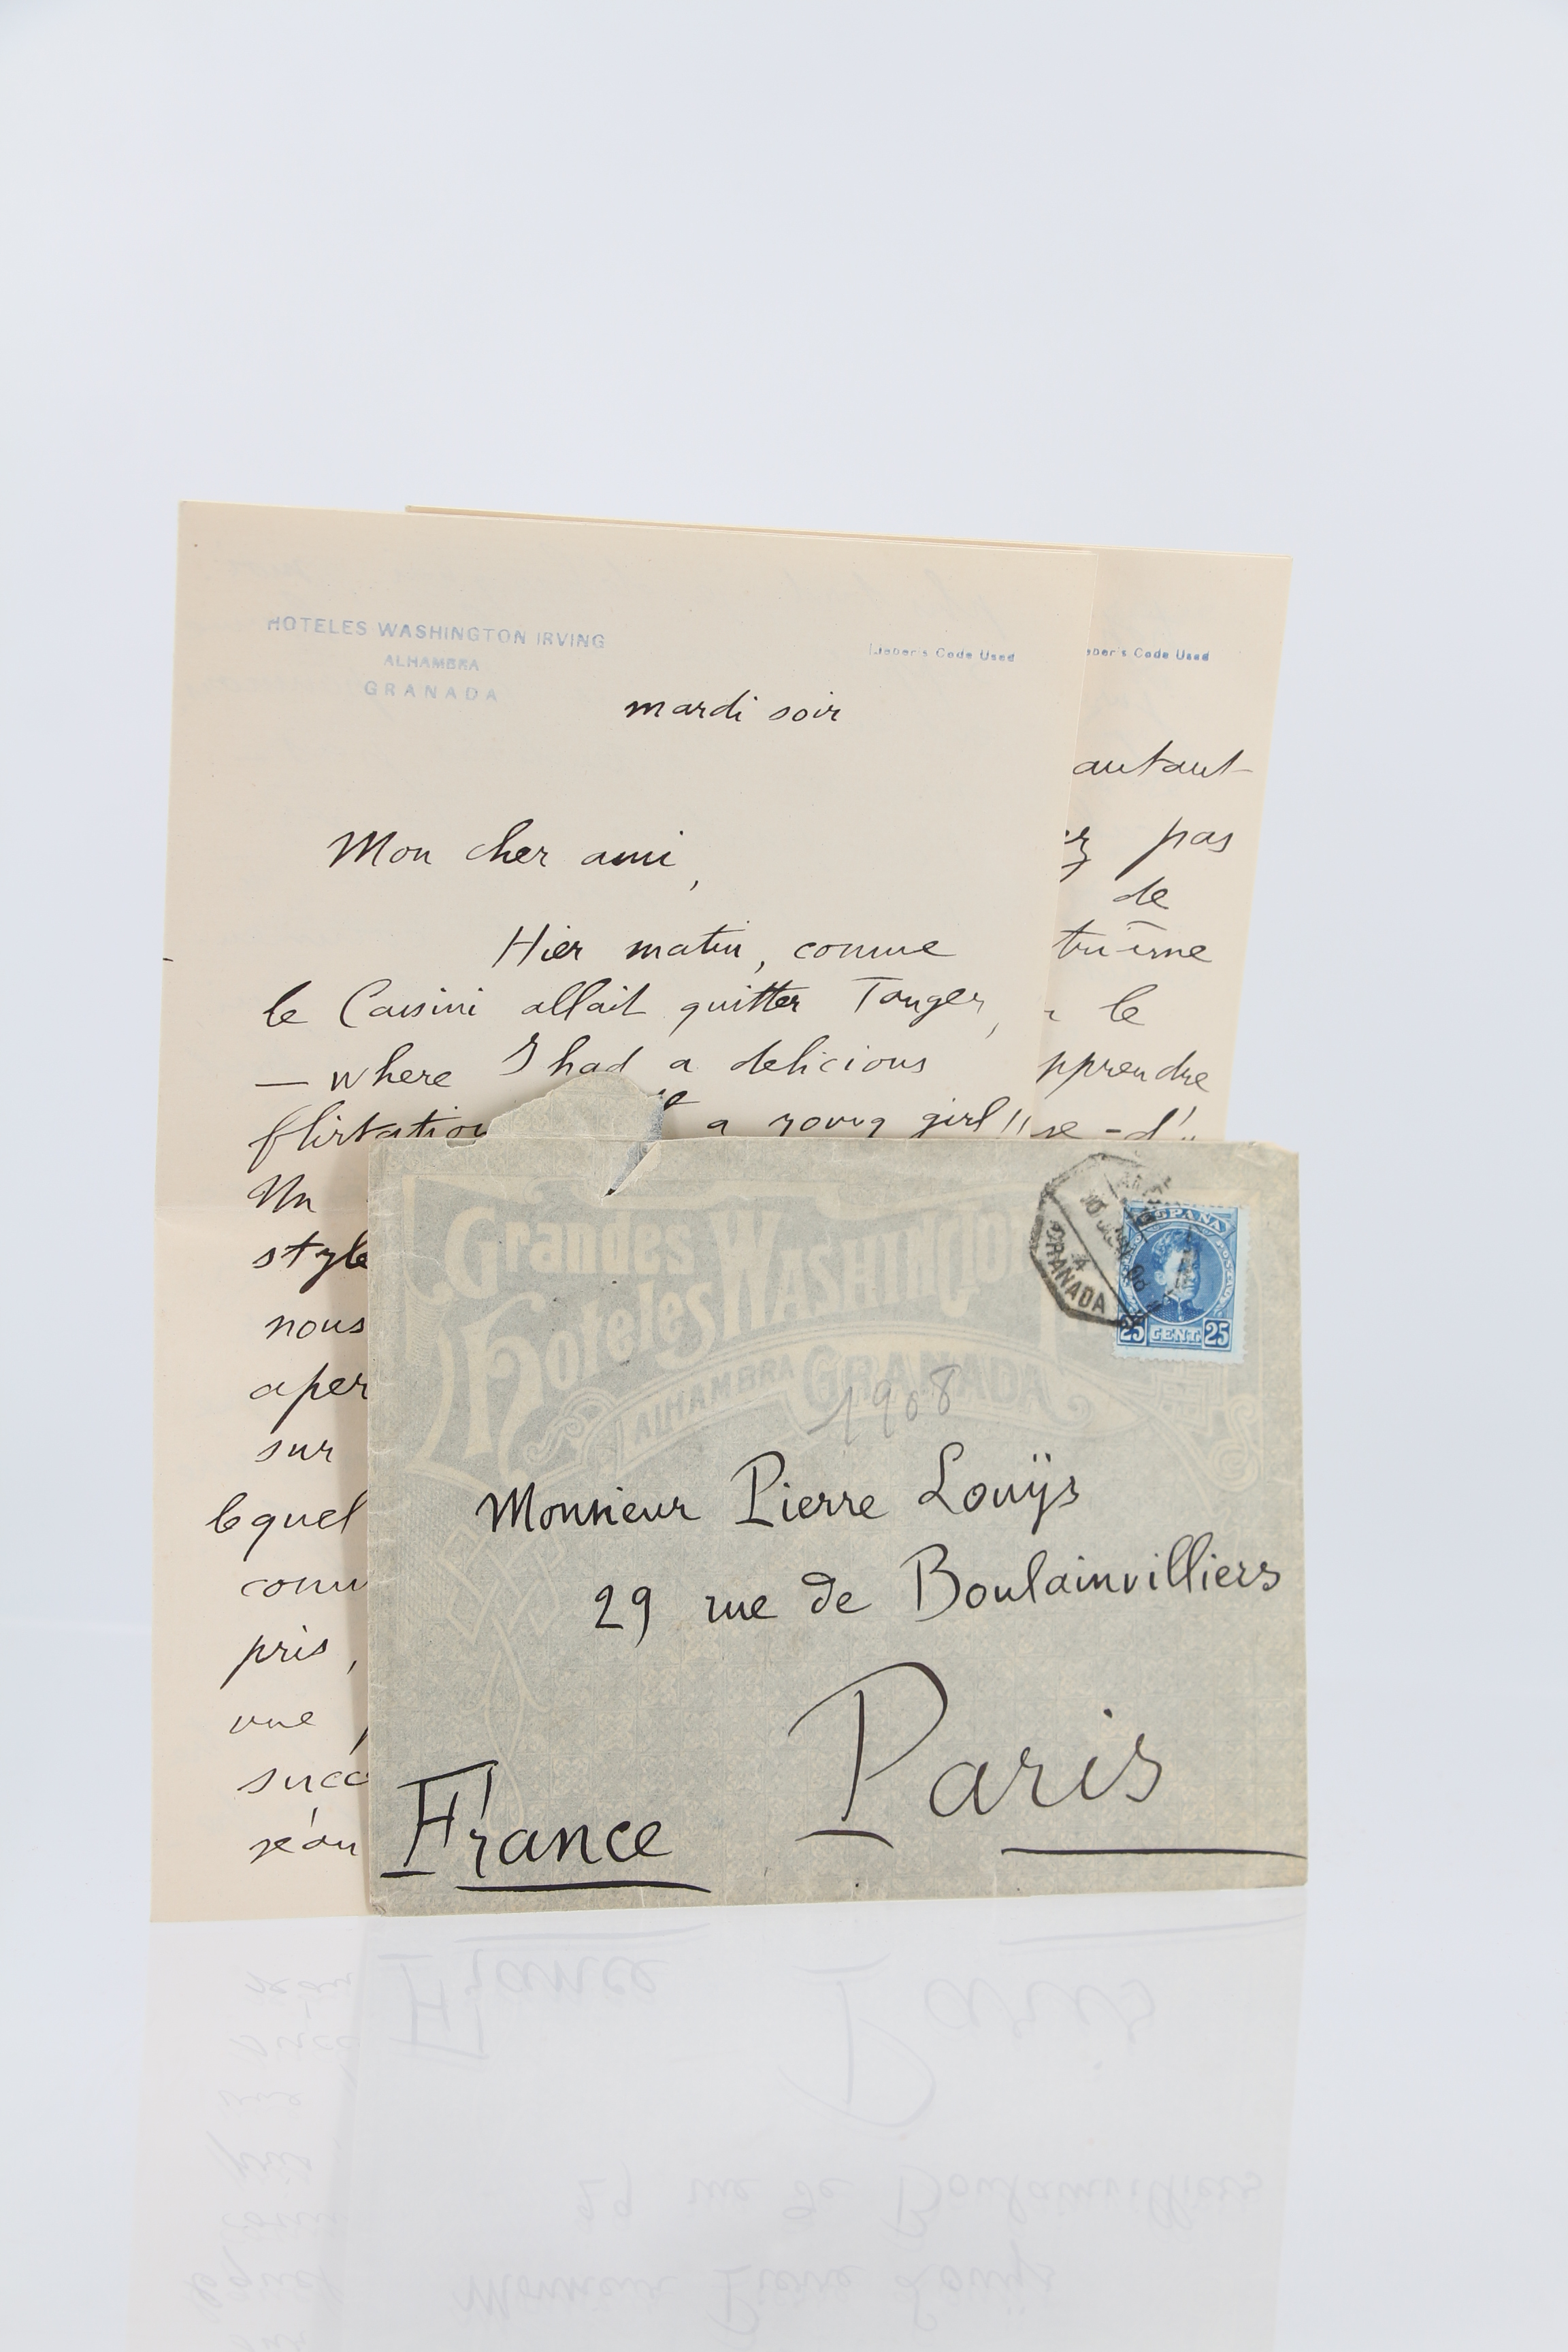 HOTELES WASHINGTON IRVING
ALHAMBRA
GRANADA
Lieber's Code Used
mardi soir
Mon cher ami,
Hier matin, comme
le Cassini allait quitter Tanger,
— where I had a delicious
flirtation a young girl!!
Un
style
nous
aper
sur
lequel
comm
pris,
vue,
succ
séan
eber's Code Used
autant
pas
de
le
pprendre
se-d'
Grandes
Hoteles WASHINGTO
ALHAMBRA GRANADA
GRANADA
ESPAÑA
25 CENT. 25
1908
Monsieur Pierre Louÿs
29 rue de Boulainvilliers
Paris
France